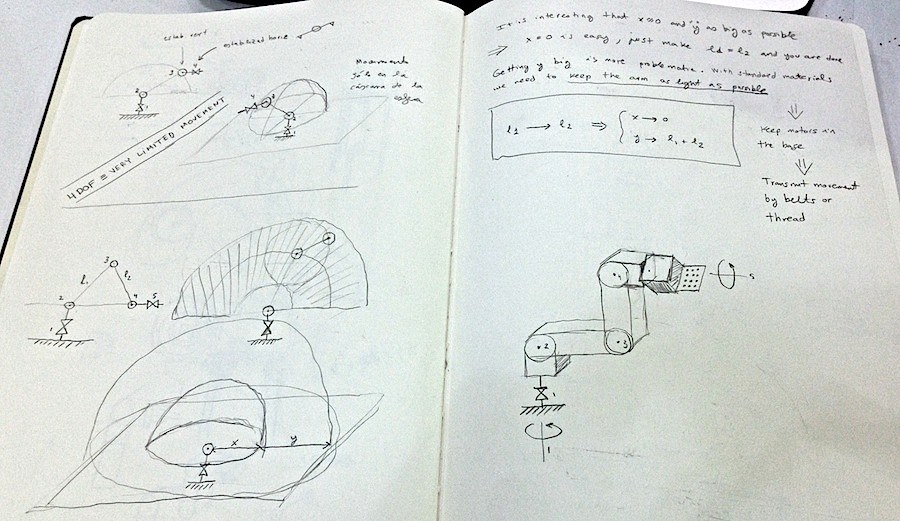 estabilized horiz
Movimiento
sólo en la
cáscara de la
esfera
3
4
2
1
4 DOF ≡ VERY LIMITED MOVEMENT
3
l1
l2
2
4
5
1
x
y
It is interesting that x≈0 and y as big as possible
⇒ x=0 is easy, just make l1 = l2 and you are done
Getting y big is more problematic. With standard materials
we need to keep the arm as light as possible
l1 → l2 ⇒ { x → 0
y → l1 + l2
⇓
Keep motors in
the base
⇓
Transmit movement
by belts or
thread
4
5
2
3
1
1